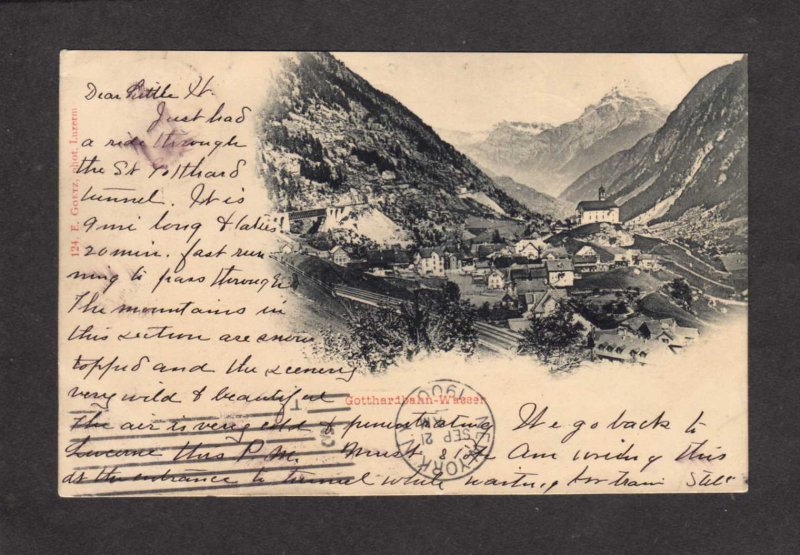 Dear Little
Just had
a ride through
the St Gotthard
tunnel. It is
9 mi long & takes
20 min. fast run
ning to pass through
The mountains in
this section are snow
topped and the scenery
very wild & beautiful
The air is very cold & penetrating We go back to
Lucerne this P.M. Am writing this
at the entrance to tunnel while waiting for train
124. E. GOETZ, phot. Luzern
Gotthardbahn-Wassen
NEW YORK
SEP 21
1900